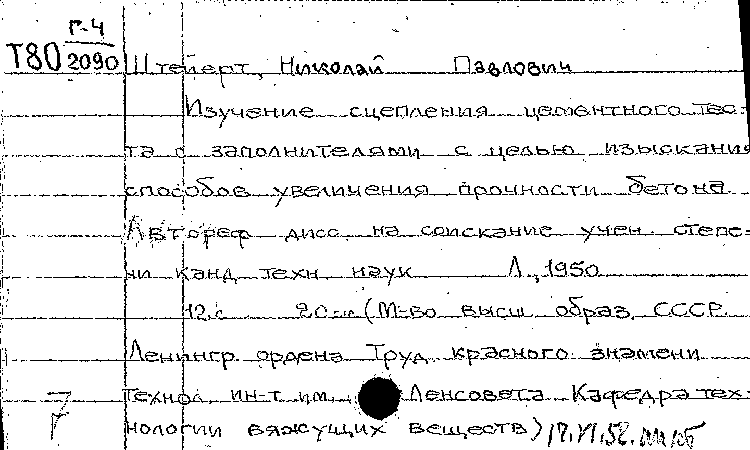 Г-4
Т80 2090 Штейерт, Николай Павлович
Изучение сцепления цементного тес-
та с заполнителями с целью изыскания
способов увеличения прочности бетона.
Автореф. дисс. на соискание учен. степе-
ни канд. техн. наук Л., 1950
12 с. 20 см (М-во высш. образ. СССР.
Ленингр. ордена Труд. красного знамени
технол. ин-т им. Ленсовета. Кафедра тех-
нологии вяжущих веществ)